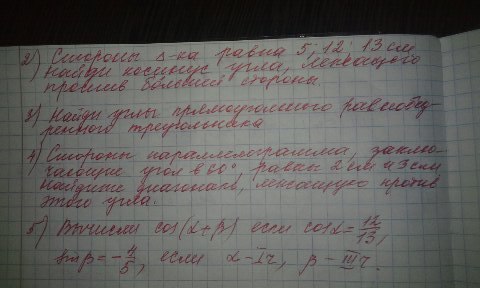 2) Стороны Δ-ка равна 5; 12; 13 см
Найди косинус угла, лежащего
против большей стороны.
3) Найди углы прямоугольного равнобед-
ренного треугольника
4) Стороны параллелограмма, заклю-
чающие угол в 60°, равны 2 см и 3 см
Найдите диагональ, лежащую против
этого угла.
5) Вычисли cos(α+β) если cosα=12/13,
sinβ=-4/5, если α-Iч, β-IIIч.